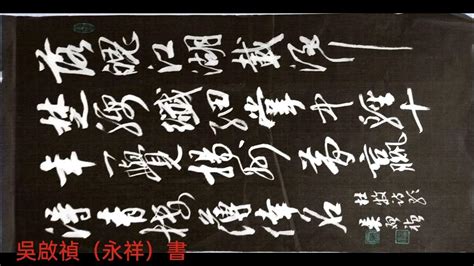 落魄江湖載酒行
楚腰纖細掌中輕十
年一覺揚州夢贏
得青樓薄倖名
杜牧詩
吳啟禎
吳啟禎（永祥）書